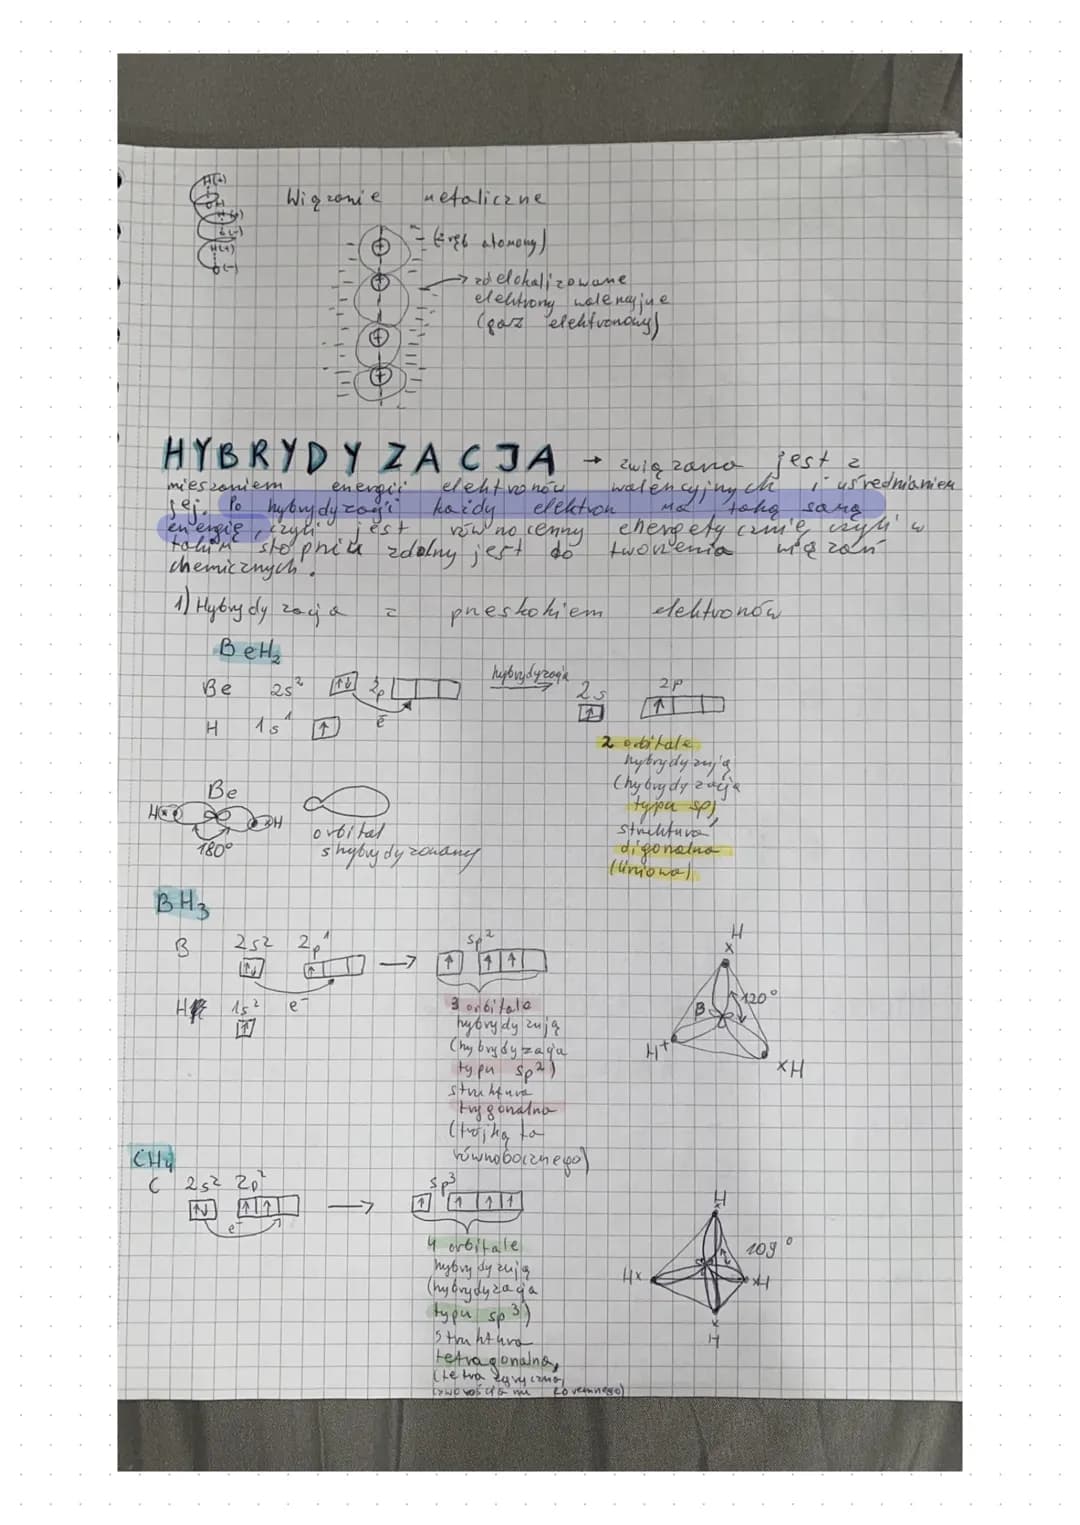 H(+)
H(+)
O(-)
H(+)
O(-)
Wiązanie metaliczne
(zrąb atomowy)
zdelokalizowane
elektrony walencyjne
(gaz elektronowy)
HYBRYDYZACJA → związana jest z
mieszaniem energii elektronów walencyjnych i uśrednianiem
jej. Po hybrydyzacji każdy elektron ma taką samą
energię, czyli jest równocenny energetycznie, czyli w
takim stopniu zdolny jest do tworzenia wiązań
chemicznych.
1) Hybrydyzacja z przeskokiem elektronów
BeH₂
Be 2s² ↑↓ 2p hybrydyzacja → 2s ↑ 2p ↑
e⁻
H 1s¹ ↑
2 orbitale
hybrydyzują
(hybrydyzacja
typu sp)
struktura
digonalna
(liniowa)
Be
H H
180°
orbital
shybrydyzowany
BH₃
B 2s² 2p¹ → sp²
↑↓ ↑ ↑ ↑ ↑
e⁻
H 1s²
↑
3 orbitale
hybrydyzują
(hybrydyzacja
typu sp²)
struktura
trygonalna
(trójkąta
równobocznego)
H
x
120°
B
H+
xH
CH₄
C 2s² 2p² → sp³
↑↓ ↑ ↑ ↑ ↑ ↑ ↑
e⁻
4 orbitale
hybrydyzują
(hybrydyzacja
typu sp³)
struktura
tetragonalna,
H
109°
Hx
xH
x
H